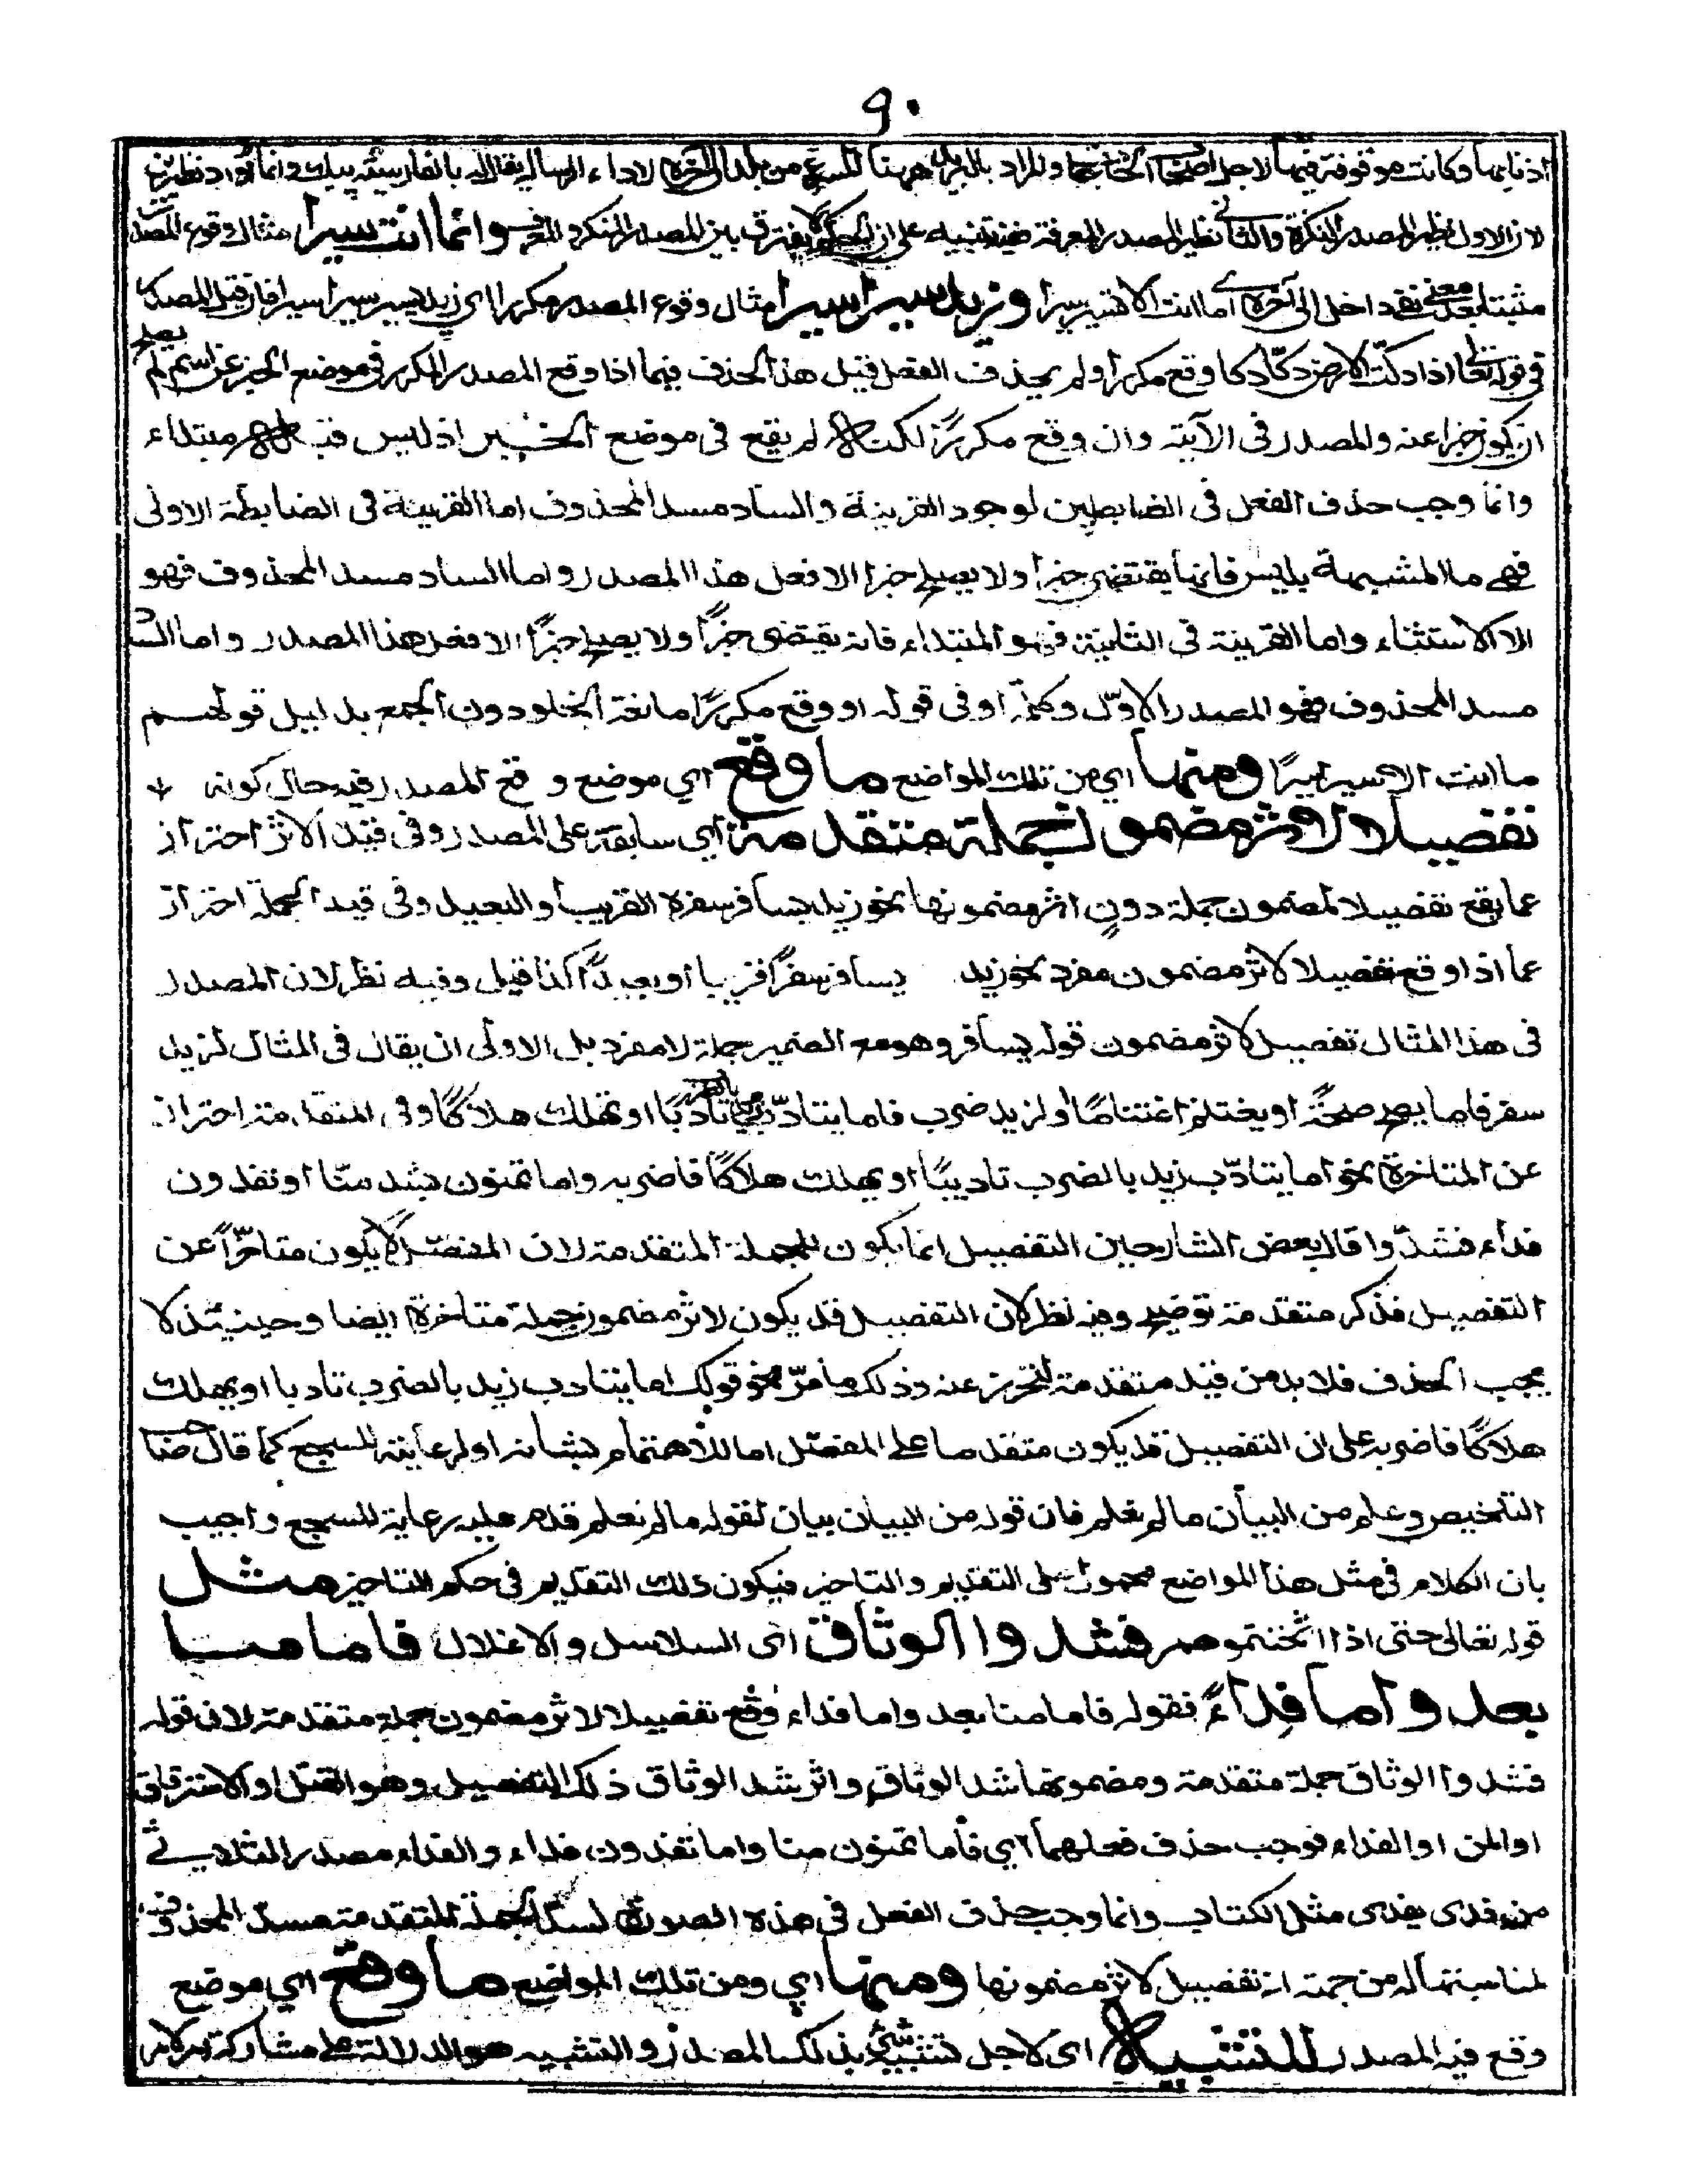 ٩٠
اذنابها وكانت موقوفة فيها لاجل والمراد بالبريد ههنا المسرع من بلد الى آخره لاداء الرسالة يقال له بالفارسية پيك وانما اورد نظيرين
لان الاول نظير المصدر النكرة والثانى نظير المصدر المعرفة ففيه تنبيه على ان الحكم لا يفترق بين المصدر المنكر والمعرف وانما انت سيرا مثال وقوع المصدر
مثبتا بعد معنى نفى داخل الى آخره اى ما انت الا تسير سيرا وزيد سيرا سيرا مثال وقوع المصدر مكررا اى زيد يسير سيرا سيرا فان قيل المصدر
فى قوله تعالى اذا دكت الارض دكّا دكا وقع مكررا ولم يحذف الفعل قيل هذا الحذف فيما اذا وقع المصدر المكرر فى موضع الخبر عن اسم لم يصلح
ان يكون خبرا عنه والمصدر فى الآية وان وقع مكررًا لكنه لم يقع فى موضع الخبر اذ ليس قبله مبتداء
وانما وجب حذف الفعل فى الضابطين لوجود القرينة والساد مسد المحذوف اما القرينة فى الضابطة الاولى
فهى ما المشبهة بليس فانها يقتضى خبرا ولا يصلح خبرا الا فعل هذا المصدر واما الساد مسد المحذوف فهو
الا الاستثناء واما القرينة فى الثانية فهو المبتداء فانه يقتضى خبرًا ولا يصلح خبرًا الا فعل هذا المصدر واما الساد
مسد المحذوف فهو المصدر الاوّل وكلمة او فى قوله او وقع مكررًا مانعة الخلو دون الجمع بدليل قولهم
ما انت الا سيرا سيرًا ومنها اى من تلك المواضع ما وقع اى موضع وقع المصدر فيه حال كونه
تفصيلا لاثر مضمون جملة متقدمة اى سابقة على المصدر وفى قيد الاثر احتراز
عما يقع تفصيلا لمضمون جملة دون اثر مضمونها نحو زيد يسافر سفره القريب او البعيد وفى قيد الجملة احتراز
عما اذا وقع تفصيلا لاثر مضمون مفرد نحو زيد يسافر سفرًا قريبا او بعيدًا كذا قيل وفيه نظر لان المصدر
فى هذا المثال تفصيل لاثر مضمون قوله يسافر وهو مع الضمير جملة لا مفرد بل الاولى ان يقال فى المثال لزيد
سفر فاما يصح صحةً او يغتنم اغتناما او لزيد ضرب فاما يتادّب تادبًا او يهلك هلاكًا وفى المتقدمة احتراز
عن المتاخرة نحو اما يتادّب زيد بالضرب تاديبًا او يهلك هلاكًا فاضربه واما تمنون بشد منّا او تفدون
فداء فشدّوا قال بعض الشارحين التفصيل انما يكون للجملة المتقدمة لان المفصّل لا يكون متاخّرًا عن
التفصيل فذكر متقدمة توضيح وفيه نظر لان التفصيل قد يكون لاثر مضمون جملة متاخرة ايضا وحينئذ لا
يجب الحذف فلا بد من قيد متقدمة لتحرز عنه وذلك ما مرّ نحو قولك اما يتادب زيد بالضرب تادبا او يهلك
هلاكًا فاضربه على ان التفصيل قد يكون متقدما على المفصّل اما للاهتمام بشانه او لرعاية السجع كما قال صاحب
التلخيص وعلم من البيان ما لم نعلم فان قوله من البيان بيان لقوله ما لم نعلم قدم عليه رعاية للسجع واجيب
بان الكلام فى مثل هذا المواضع محمول على التقديم والتاخير فيكون ذلك التقديم فى حكم التاخير مثل
قوله تعالى حتى اذا اثخنتموهم فشدوا الوثاق اى السلاسل والاغلال فاما منا
بعد واما فداءً فقوله فاما منا بعد واما فداء وقع تفصيلا لاثر مضمون جملة متقدمة لان قوله
فشدوا الوثاق جملة متقدمة ومضمونها شد الوثاق واثر شد الوثاق ذلك التفصيل وهو القتل او الاسترقاق
او المن او الفداء فوجب حذف فعلهما اى فاما تمنون منا واما تفدون فداء والفداء مصدر الثلاثى
من فدى يفدى مثل الكتاب وانما وجب حذف الفعل فى هذه الصورة لسدّ الجملة المتقدمة مسدّ المحذوف
لمناسبتها له من جهة ان تفصيل لاثر مضمونها ومنها اى ومن تلك المواضع ما وقع اى موضع
وقع فيه المصدر للتشبيه اى لاجل تشبيه شئ بذلك المصدر والتشبيه هو الدلالة على مشاركة امر لامر